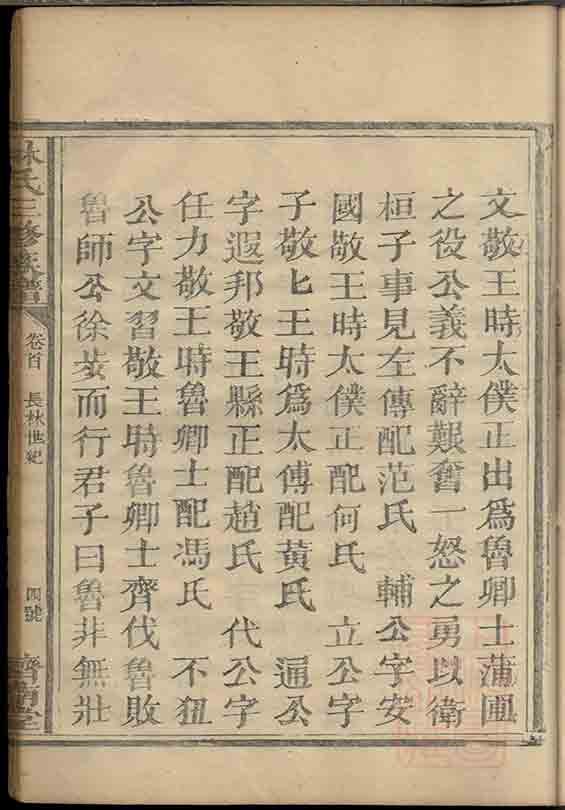 文敬王時太僕正出爲魯卿士蒲圃
之役公義不辭艱奮一怒之勇以衛
桓子事見左傳配范氏 輔公字安
國敬王時太僕正配何氏 立公字
子敬七王時爲太傅配黃氏 通公
字遐邦敬王縣正配趙氏 代公字
任力敬王時魯卿士配馮氏 不狃
公字文習敬王時魯卿士齊伐魯敗
魯師公徐步而行君子曰魯非無壯
林氏三修族譜 卷首 長林世紀 四號 濟南堂